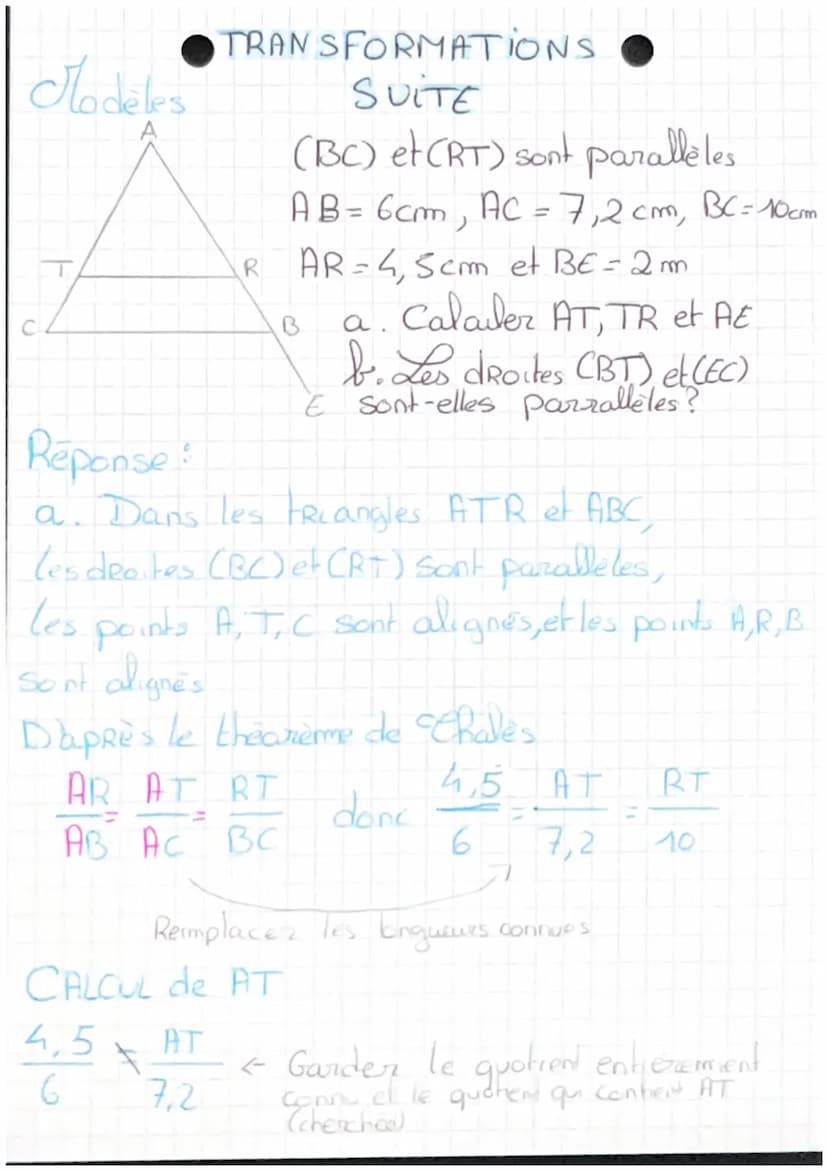 TRANSFORMATIONS
SUITE
Modèles
A
T
R
C
B
E
(BC) et (RT) sont parallèles
AB = 6cm, AC = 7,2 cm, BC = 10cm
AR = 4,5cm et BE = 2 m
a. Calculer AT, TR et AE
b. Les droites (BT) et (EC)
sont-elles parrallèles?
Réponse :
a. Dans les triangles ATR et ABC,
les droites (BC) et (RT) sont parallèles,
les points A, T, C sont alignés, et les points A, R, B
sont alignés
D'après le théorème de Thalès
AR/AB = AT/AC = RT/BC donc 4,5/6 = AT/7,2 = RT/10
Remplacer les longueurs connues
CALCUL de AT
4,5/6 = AT/7,2 ← Garder le quotient entièrement
connu et le quotient qui contient AT
(cherchée)